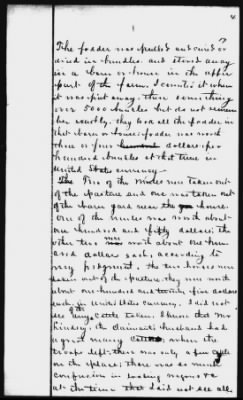 The fodder was pulled and cured or
dried in bundles, and stored away
in a barn or house in the upper
part of the farm. I counted it when
it was put away, there something
over 5000 bundles but do not
exactly. they took all the fodder in
that barn or house: fodder was worth
three or four dollars per
hundred bundles at that time in
United States currency.
The Two of the mules were taken out
of the pasture and one was taken out
of the barn yard near the house.
One of the mules was worth about
one hundred and fifty dollars, the
other two were worth about one hun
dred dollars each, according to
my judgment. The two horses were
taken out of the pasture, they were worth
about one hundred and twenty five dollars
each, in United States currency. I did not
see any of the Cattle taken. I know that Mr
Lindsey, the claimants husband had
a great many cattle, when the
troops left there was only a few cattle
on the place; there was so much
confusion in loading wagons &c
at the time that I did not see all.